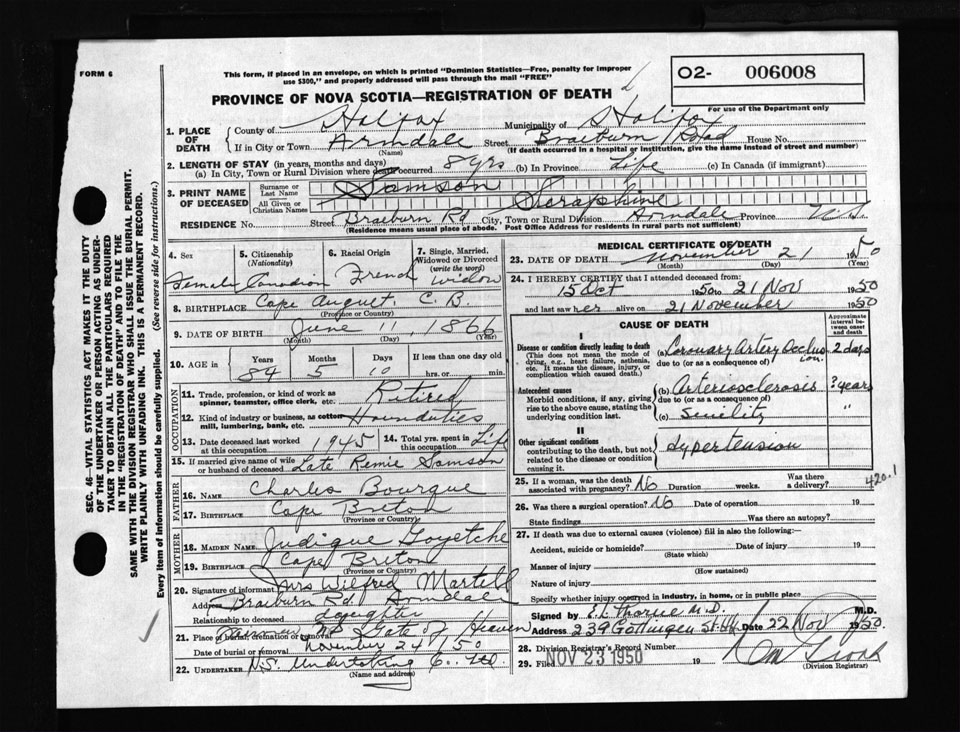 FORM 6
This form, if placed in an envelope, on which is printed "Dominion Statistics—Free, penalty for improper
use $300," and properly addressed will pass through the mail "FREE"
O2- 006008
For use of the Department only
PROVINCE OF NOVA SCOTIA—REGISTRATION OF DEATH
1. PLACE OF DEATH
County of Halifax Municipality of Halifax
If in City or Town Armdale Street Braeburn Road House No.
(Name) (If death occurred in a hospital or institution, give the name instead of street and number)
2. LENGTH OF STAY (in years, months and days)
(a) In City, Town or Rural Division where death occurred 8 yrs (b) In Province Life (c) In Canada (if immigrant)
3. PRINT NAME OF DECEASED
Surname or Last Name Samson
All Given or Christian Names Seraphine
RESIDENCE No. Street Braeburn Rd City, Town or Rural Division Armdale Province N.S.
(Residence means usual place of abode. Post Office Address for residents in rural parts not sufficient)
4. Sex 5. Citizenship (Nationality) 6. Racial Origin 7. Single, Married, Widowed or Divorced (write the word)
Female Canadian French widow
8. BIRTHPLACE Cape August. C.B.
(Province or Country)
9. DATE OF BIRTH June 11 1866
(Month) (Day) (Year)
10. AGE in Years Months Days If less than one day old
84 5 10 hrs. or min.
OCCUPATION
11. Trade, profession, or kind of work as spinner, teamster, office clerk, etc. Retired
12. Kind of industry or business, as cotton mill, lumbering, bank, etc.
13. Date deceased last worked at this occupation 1945 14. Total yrs. spent in this occupation Life
15. If married give name of wife or husband of deceased Late Remie Samson
FATHER
16. NAME Charles Bourque
17. BIRTHPLACE Cape Breton
(Province or Country)
MOTHER
18. MAIDEN NAME Judique Goyetche
19. BIRTHPLACE Cape Breton
(Province or Country)
20. Signature of informant Mrs Wilfred Martell
Address Braeburn Rd. Armdale
Relationship to deceased daughter
21. Place of burial, cremation or removal Gate of Heaven
Date of burial or removal November 24/50
22. UNDERTAKER N.S. Undertaking Co. Ltd
(Name and address)
MEDICAL CERTIFICATE OF DEATH
23. DATE OF DEATH November 21 1950
(Month) (Day) (Year)
24. I HEREBY CERTIFY that I attended deceased from:
15 Oct 1950 to 21 Nov 1950
and last saw her alive on 21 November 1950
CAUSE OF DEATH
Approximate interval between onset and death
I
Disease or condition directly leading to death (a) Coronary Artery Occlusion. 2 days
(This does not mean the mode of dying, e.g., heart failure, asthenia, etc. It means the disease, injury, or complication which caused death.)
due to (or as a consequence of)
Antecedent causes (b) Arteriosclerosis ? years
Morbid conditions, if any, giving rise to the above cause, stating the underlying condition last.
due to (or as a consequence of)
(c) Senility "
II
Other significant conditions Hypertension
contributing to the death, but not related to the disease or condition causing it.
420.1
25. If a woman, was the death associated with pregnancy? No Duration weeks. Was there a delivery?
26. Was there a surgical operation? No Date of operation 19
State findings Was there an autopsy?
27. If death was due to external causes (violence) fill in also the following:
Accident, suicide or homicide? Date of injury 19
(State which)
Manner of injury
(How sustained)
Nature of injury
Specify whether injury occurred in industry, in home, or in public place
Signed by E.L. Thorne M.D. M.D.
Address 239 Gottingen St. Hfx Date 22 Nov 1950.
28. Division Registrar's Record Number
29. Filed NOV 23 1950 19
(Division Registrar)
SEC. 46—VITAL STATISTICS ACT MAKES IT THE DUTY
OF THE UNDERTAKER OR PERSON ACTING AS UNDER-
TAKER TO OBTAIN ALL THE PARTICULARS REQUIRED
IN THE "REGISTRATION OF DEATH" AND TO FILE THE
SAME WITH THE DIVISION REGISTRAR WHO SHALL ISSUE THE BURIAL PERMIT.
WRITE PLAINLY WITH UNFADING INK. THIS IS A PERMANENT RECORD.
Every item of information should be carefully supplied. (See reverse side for instructions.)